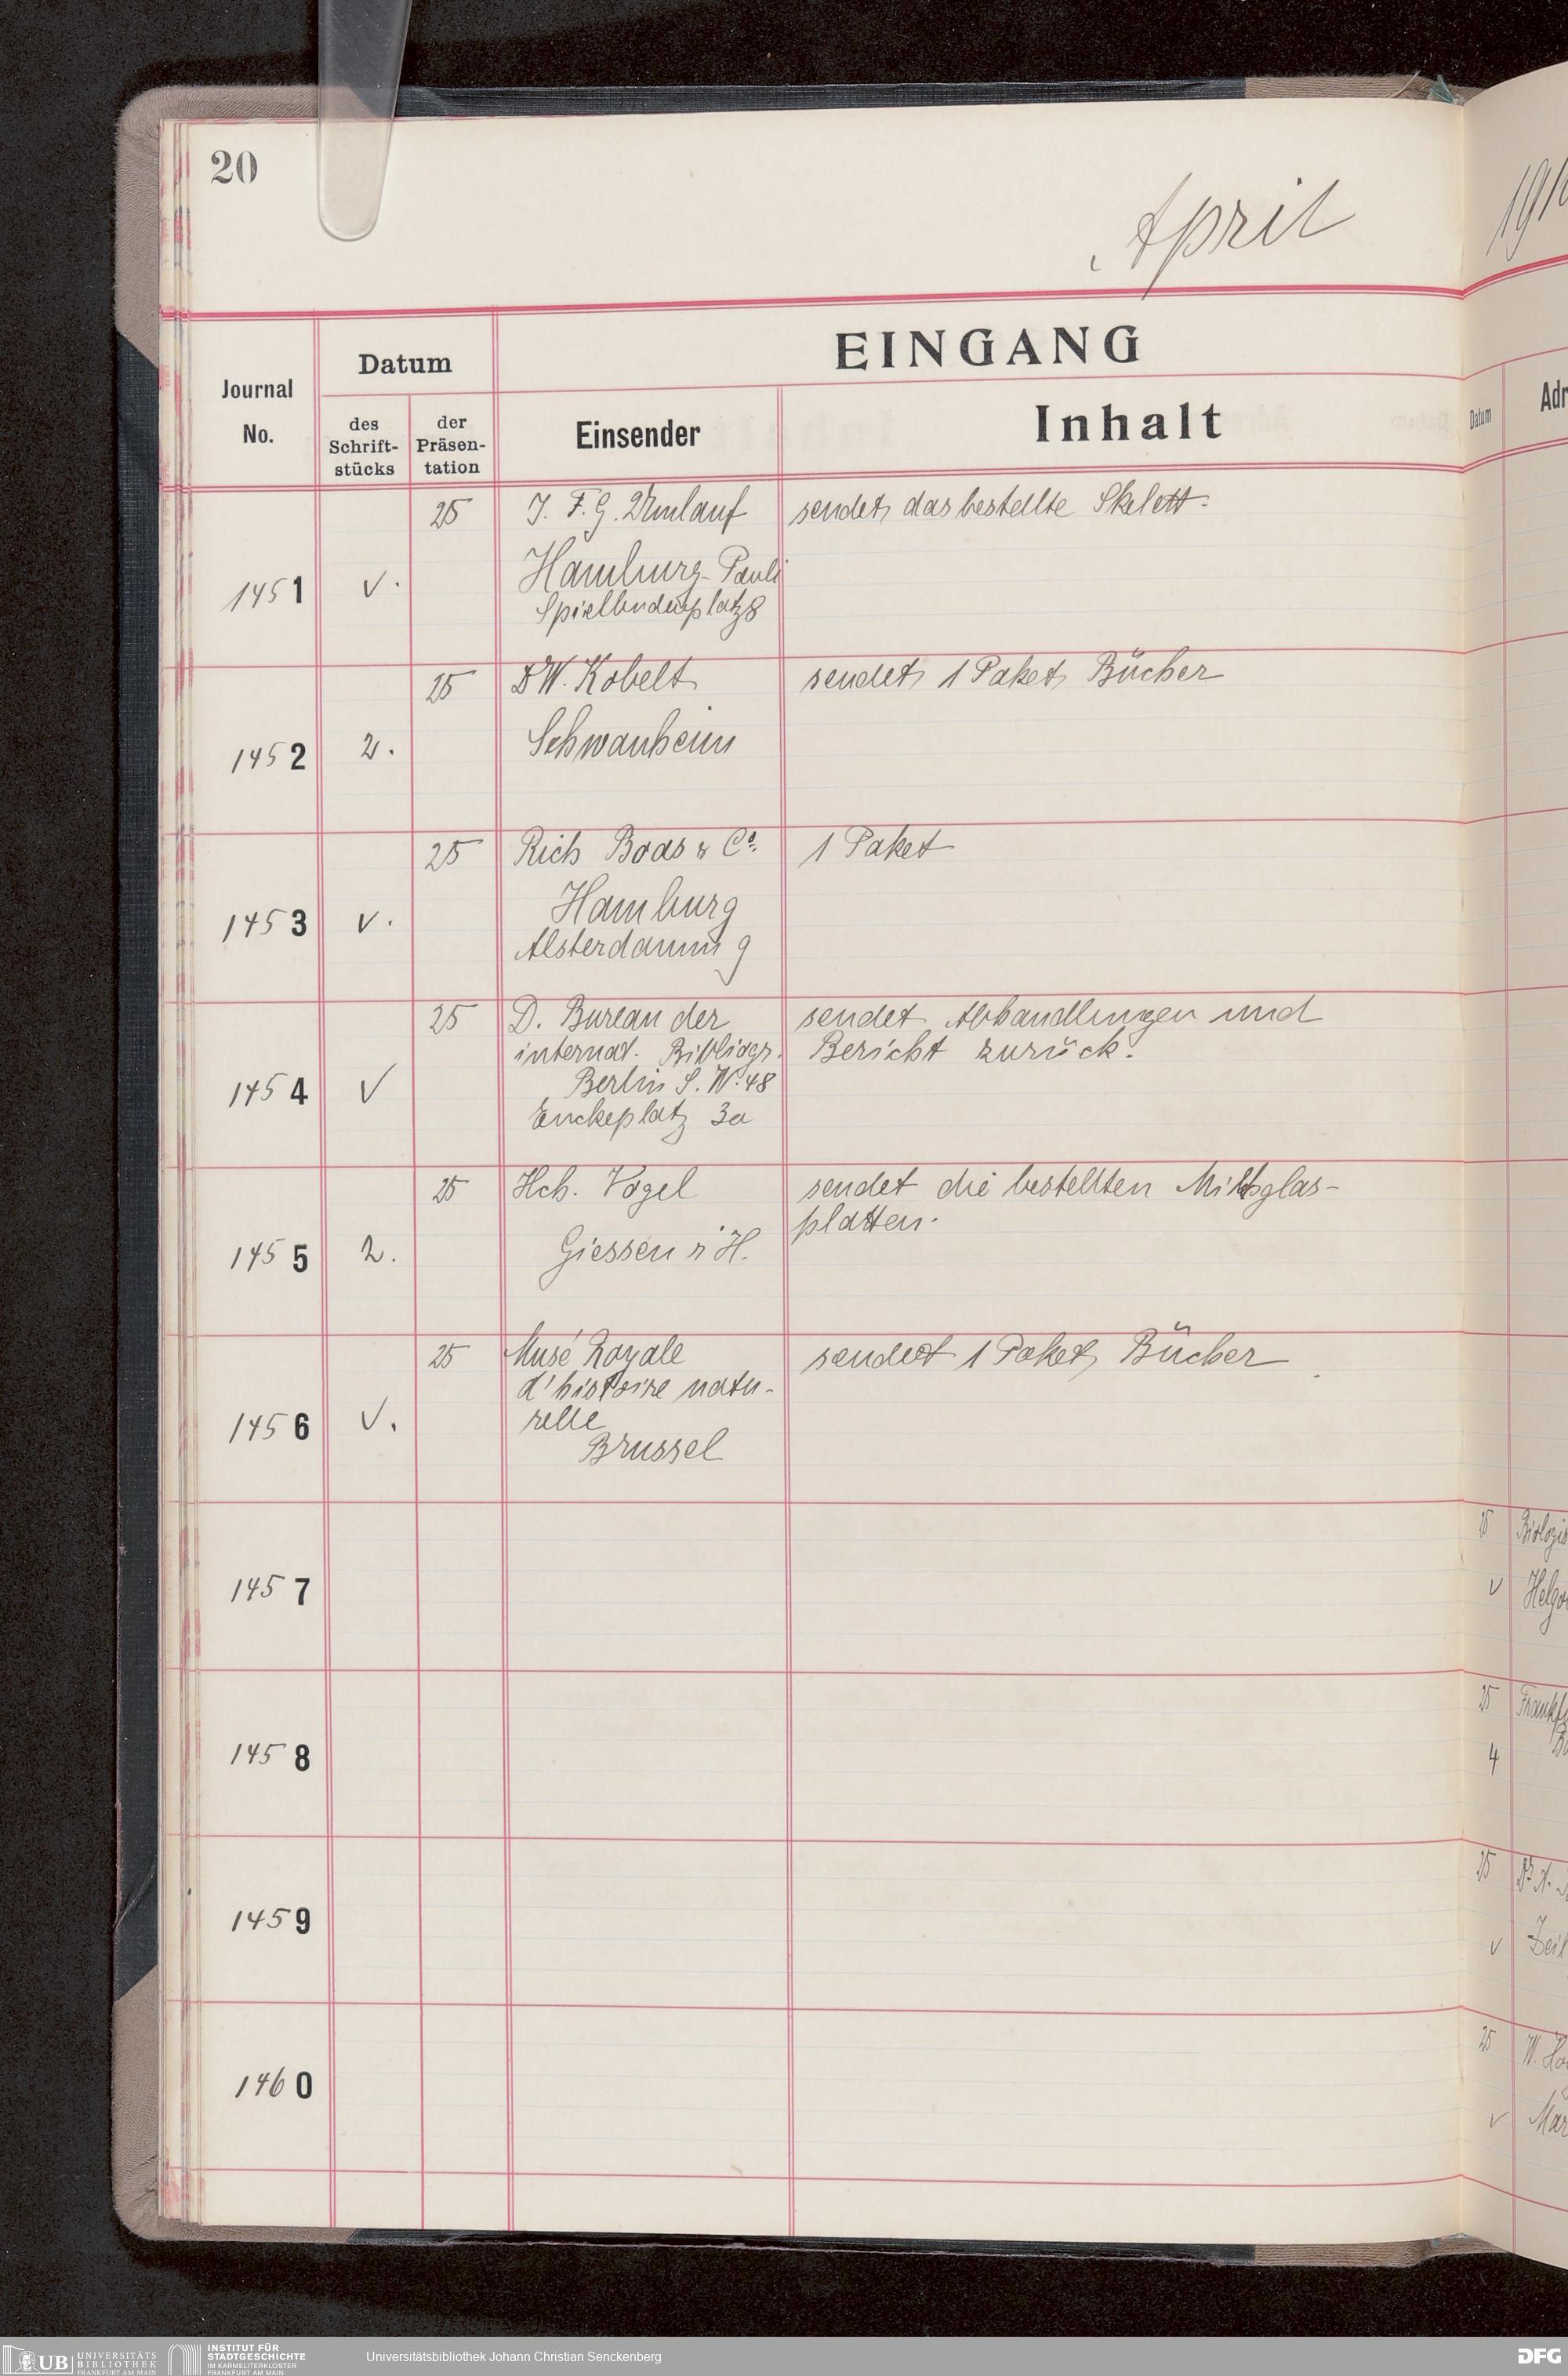 20
April
191
EINGANG
Journal
No.
Datum
des
Schrift-
stücks
der
Präsen-
tation
Einsender
Inhalt
Datum
Adr
1451
v.
25
J. F. G. Umlauf
Hamburg-Pauli
Spielbudenplatz 8
sendet das bestellte Skelett.
1452
2.
25
Dr W. Kobelt
Schwanheim
sendet 1 Paket Bücher
1453
v.
25
Rich Boas & Co.
Hamburg
Alsterdamm 9
1 Paket
1454
v
25
D. Bureau der
internat. Bibliogr.
Berlin S. W. 48
Enckeplatz 3a
sendet Abhandlungen und
Bericht zurück.
1455
2.
25
Hch. Vogel
Giessen i/H.
sendet die bestellten Milchglas-
platten.
1456
v.
25
Musé Royale
d'histoire natu-
relle
Brussel
sendet 1 Paket Bücher
1457
25
Biologis
v
Helgo
1458
25
Frankf
4
1459
25
Dr A.
v
Zeil
1460
25
W.
v
Mar
UB UNIVERSITÄTS
BIBLIOTHEK
FRANKFURT AM MAIN
INSTITUT FÜR
STADTGESCHICHTE
IM KARMELITERKLOSTER
FRANKFURT AM MAIN
Universitätsbibliothek Johann Christian Senckenberg
DFG